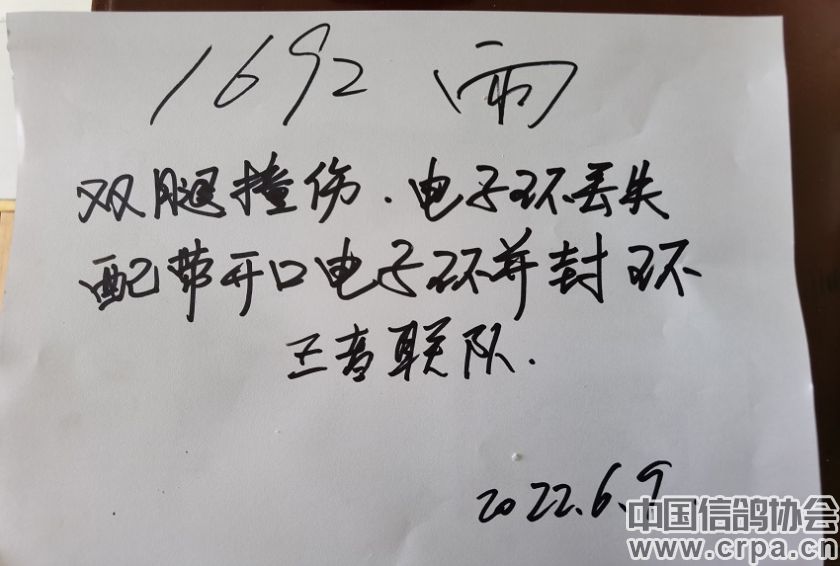 1692 雨
双腿撞伤.电子环丢失
配带开口电子环并封环
正音联队.
2022.6.9
中国信鸽协会
www.crpa.cn